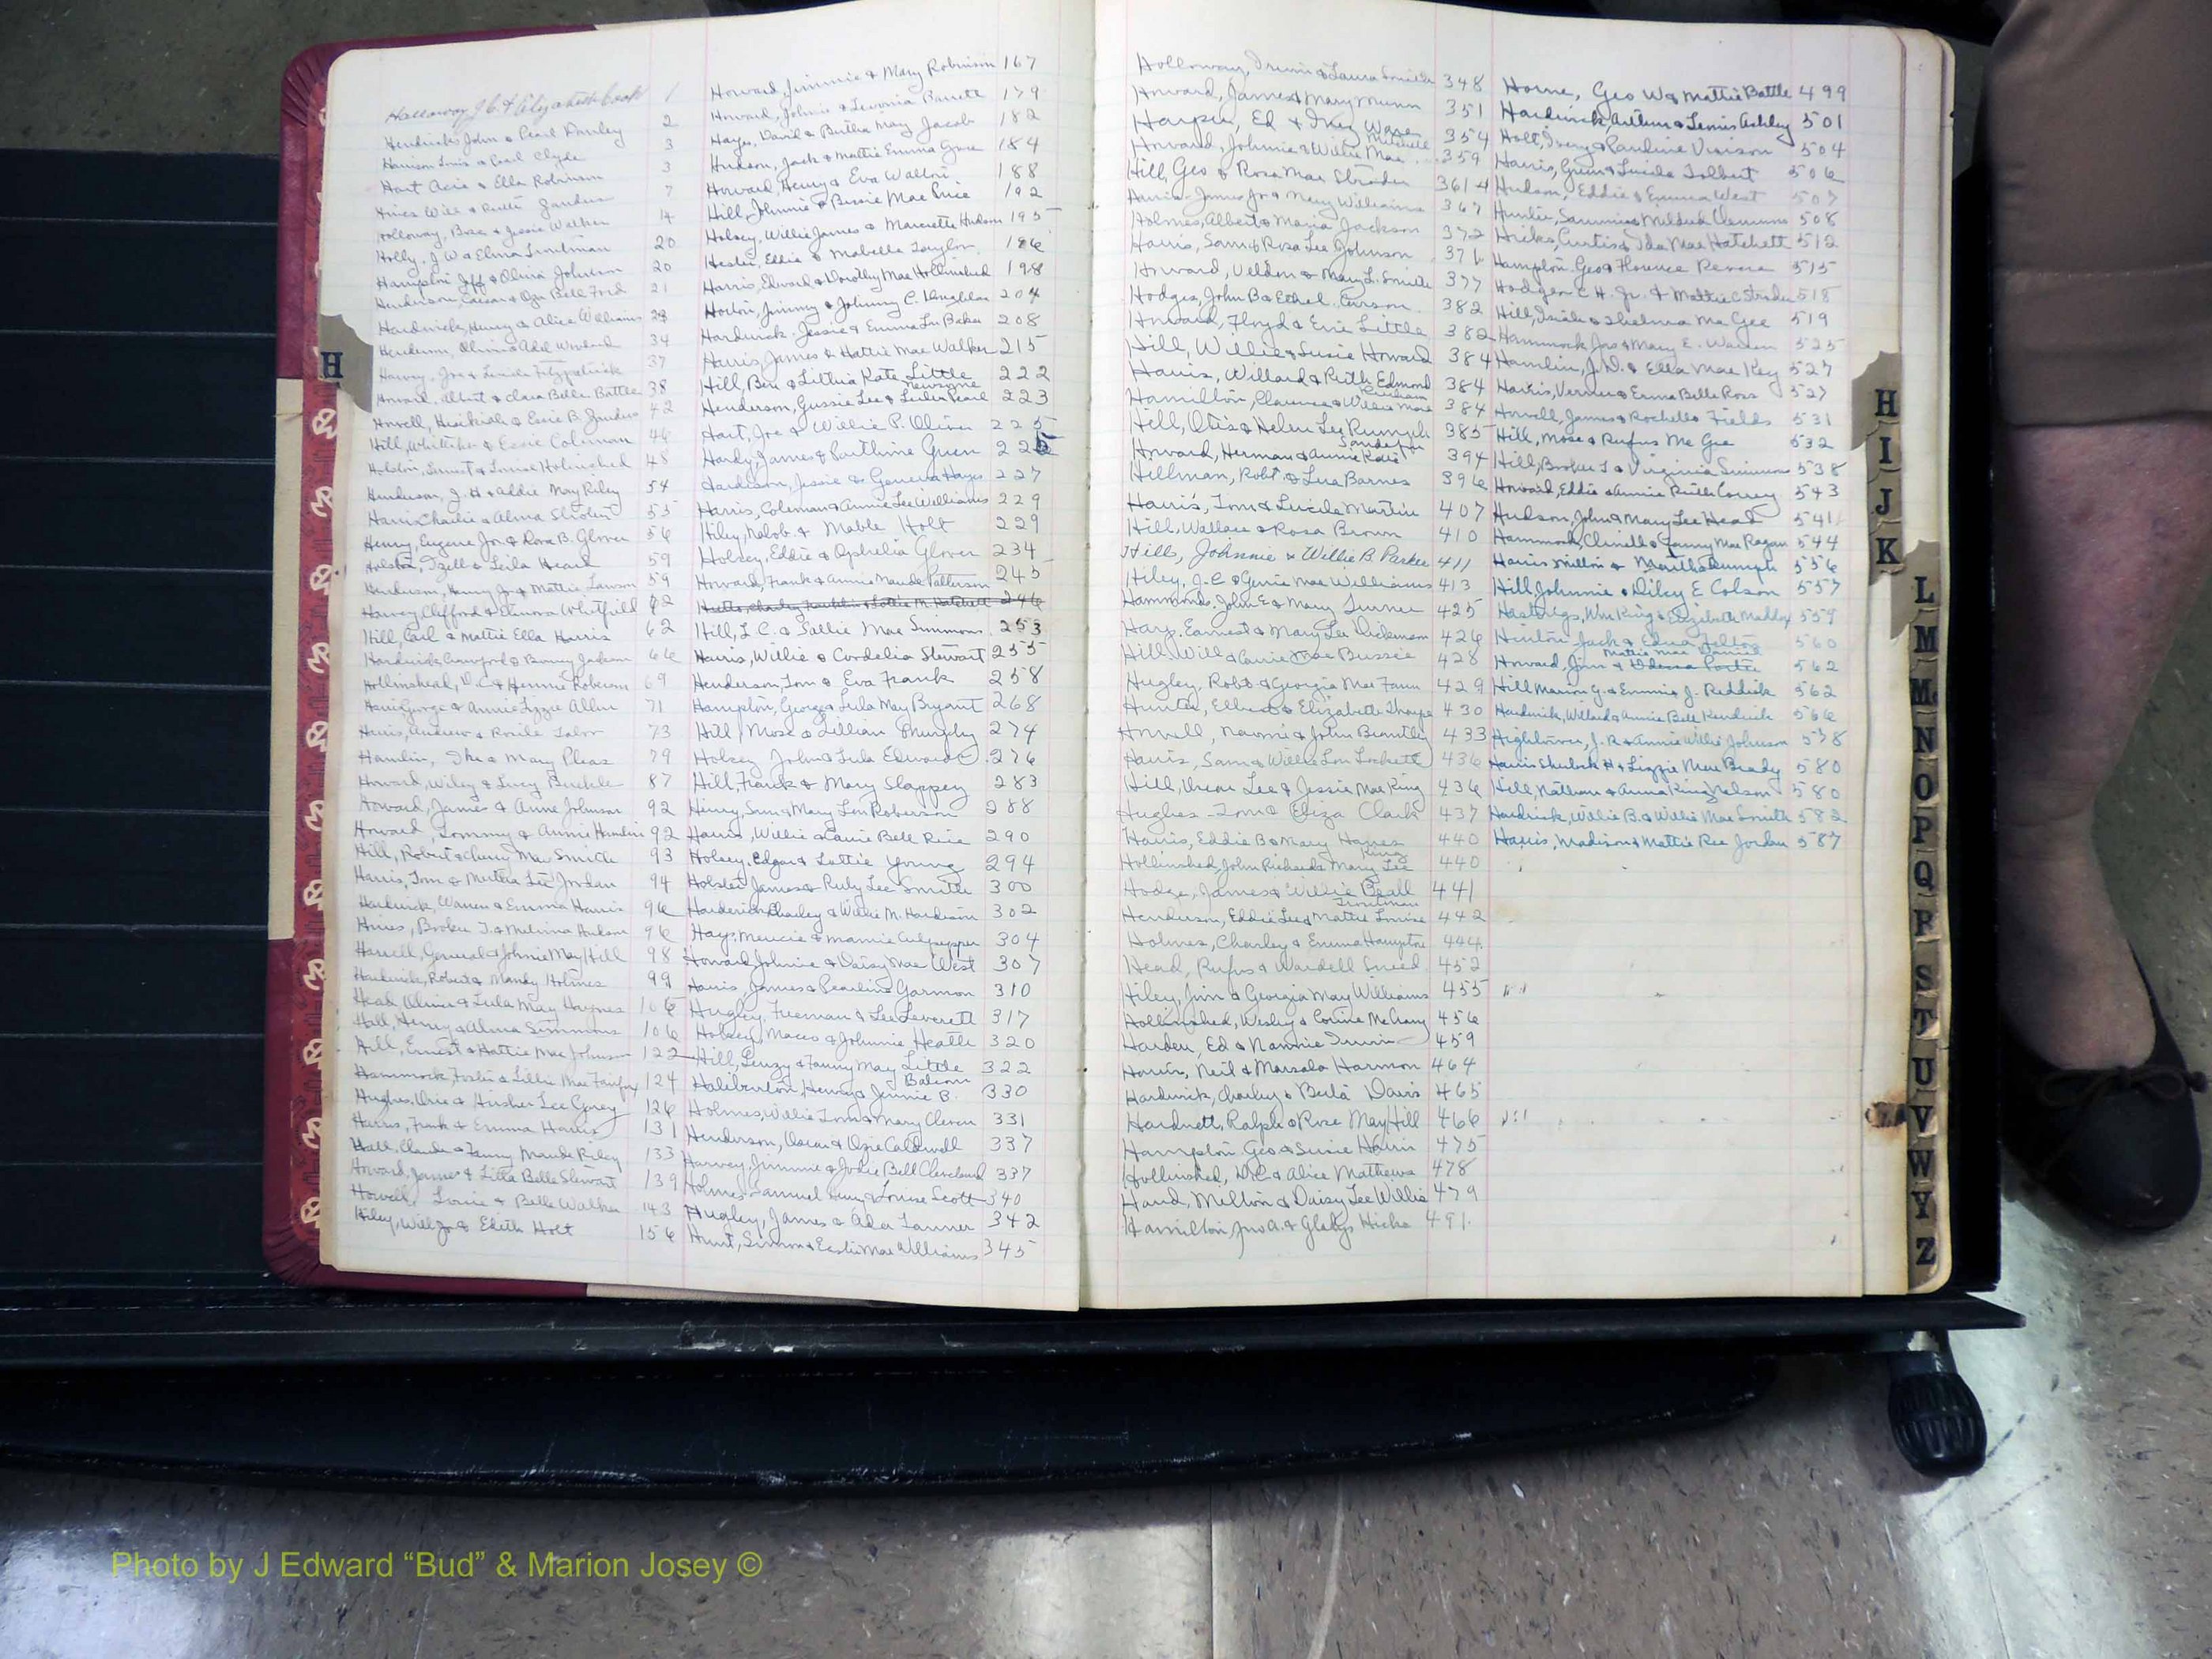 Holloway, J.C. & Elizabeth Cook 1
Hendricks John & Pearl 2
Harrison Louis & Pearl Clyde 3
Hart Acie & Ella Robinson 3
Hines Will & Ruth Sanders 7
Holloway, & Jessie Walker 14
Holly, J.W. & Elma Troutman 20
Hampton Jeff & Olivia Johnson 20
Henderson, Caesar & Bell Ford 21
Hardwick, Henry & Alice Williams 28
Henderson, & 34
Harvey, Joe & Lucile Fitzpatrick 37
Howard, Albert & Clara Belle Battle 38
Howell, Hezekiah & Essie B. Sanders 42
Hill, Whittaker & Essie Coleman 46
Holston, Ernest & Louise Holinshed 48
Henderson, J. H & Addie May Riley 54
Harris Charlie & Alma 55
Henry, Eugene Jr. & Rosa B. Glover 56
& Leila Heard 59
Henderson, Henry Jr. & Mattie Lawson 59
Harvey Clifford & Elnora Whitfield 62
Hill, Carl & Mattie Ella Harris 62
Hardwick, Crawford & Jackson 66
Hollinshead, D.C. & Roberson 69
Harris, George & Annie Lizzie Allen 71
Harris, Andrew & Tabor 73
Hamlin, Ike & Mary Pleas 79
Howard, Wiley & Lucy 87
Howard, James & Anne Johnson 92
Howard, Tommy & Annie Hamlin 92
Hill, Robert & Cherry Mae Smith 93
Harris, Tom & Lee Jordan 94
Hardwick, Warren & Emma Harris 96
Hines, Broken T. & Melvina Hudson 96
Harrell, General & Johnie May Hill 98
Hardwick, Robert & Mandy Holmes 99
Head, Oliver & Lula May Haynes 106
Hall, Henry & Alma Simmons 106
Hill, Ernest & Hattie Mae Johnson 122
Hammock, Foster & Lillie Mae Fairfax 124
Hughes, & Lee Corey 126
Harris, Frank & Emma Harris 131
Hall, Claude & Fanny Maude Riley 133
Howard, James & Litta Belle Stewart 139
Howell, & Belle Walker 143
Hiley, & Edith Holt 156
Howard, Jimmie & Mary Robinson 167
Howard, Johnie & Levonia Barrett 179
Hayes, David & Bertha May Jacob 182
Hudson, Jack & Mattie Emma 184
Howard, Henry & Eva Walton 188
Hill, Johnnie & Bessie Mae Price 192
Holsey, Willie James & Marcette Hudson 195
Hester, Eddie & Mabelle Taylor 196
Harris, Edward & Dorothy Mae Hollinshed 198
Horton, Jimmy & Johnny C. 204
Hardwick, Jessie & Emma Lu Baker 208
Harris, James & Hattie Mae Walker 215
Hill, Ben & Kate Little 222
Henderson, Gussie Lee & Lula Pearl Newsome 223
Hart, Joe & Willie P. Oliver 225
Hardy, James & Green 225
Hardison, Jessie & Geneva Hayes 227
Harris, Coleman & Annie Lee Williams 229
Hiley, & Mable Holt 229
Holsey, Eddie & Ophelia Glover 234
Howard, Frank & Annie Maude Patterson 245
Charley Franklin & Lottie M. Hatchett 246
Hill, L.C. & Sallie Mae Simmons 253
Harris, Willie & Cordelia Stewart 255
Henderson, Tom & Eva Frank 258
Hampton, George & Lula May Bryant 268
Hill, Mose & Lillian Murphy 274
Holsey John & Lula Edwards 276
Hill, Frank & Mary Slappey 283
Henry, Sam & Mary Lou Roberson 288
Harris, Willie & Carrie Bell Rice 290
Holsey, Edgar & Lottie Young 294
James & Ruby Lee Smith 300
Charley & Willie M. Hardison 302
Hays, & Mamie Culpepper 304
Howard Johnie & Daisy Mae West 307
Harris, James & Pearline Garmon 310
Hugley, Freeman & Lee Leverett 317
Holsey, Maceo & Johnnie Heath 320
Hill, & Fanny May Little 322
Haliburton, Henry & Jennie B. Balcom 330
Holmes, Willie Tom & Mary 331
Henderson, Oscar & Ozie Caldwell 337
Harvey, Jimmie & Josie Bell Cleveland 337
Holmes, Samuel & Louise Scott 340
Hugley, James & Ada Tanner 342
Hunt, & Mae Williams 345
Holloway, Irwin & Laura Smith 348
Howard, James & Mary Munn 351
Harper, Ed & Inez Ware 354
Howard, Johnnie & Willie Mae Mitchell 359
Hill, Geo & Rosa Mae 361
Harris, James Jr & Mary Williams 367
Holmes, Albert & Maria Jackson 372
Harris, Sam & Rosa Lee Johnson 376
Howard, Veldon & Mary L. Smith 377
Hodges, John B & Ethel 382
Howard, Floyd & Evie Little 382
Hill, Willie & Susie Howard 384
Harris, Willard & Ruth Edmond 384
Hamilton, Clarence & Willie Mae 384
Hill, Otis & Helen Lee Rumph 385
Howard, Herman & Annie Kate 394
Hillman, Robt. & Lena Barnes 396
Harris, Tom & Lucile Martin 407
Hill, Wallace & Rosa Brown 410
Hill, Johnnie & Willie B. Parker 411
Hiley, J.C & Genie Mae Williams 413
Hammond, John E & Mary Turner 425
Harp, Earnest & Mary Lee Dickerson 426
Hill, Will & Carrie Mae Bussie 428
Hugley, Robt. & Georgia Mae 429
Hunter, Elbert & Elizabeth Tharpe 430
Howell, & John Brantley 433
Harris, Sam & Willie Lou Lockett 436
Hill, Lee & Jessie Mae King 436
Hughes - Tom & Eliza Clark 437
Harris, Eddie B & Mary 440
Hollinshed, John Richard & Mary Lee King 440
Hodge, James & Willie Beall 441
Henderson, Eddie Lee & Mattie Louise Troutman 442
Holmes, Charley & Emma Hampton 444
Head, Rufus & Wardell Sneed 452
Hiley, Jim & Georgia May Williams 455
Hollinshed, Wesley & Corine McCrary 456
Harden, Ed & Nannie Irwin 459
Harris, Neil & Harmon 464
Hardwick, Charley & Davis 465
Hardnett, Ralph & Rose May Hill 466
Hampton Geo & Susie Harris 475
Hollinshed, D.C & Alice Mathews 478
Hand, Melton & Daisy Lee Willis 479
Hamilton, Jno A. & Gladys Hicks 491
Horne, Geo W & Mattie Battle 499
Hardwick, Arthur & Ashley 501
Holt, & Pauline Vinson 504
Harris, Green & Lucile Tolbert 506
Hudson, Eddie & Emma West 507
Hunter, Sammie & Mildred Clemmons 508
Hicks, Curtis & Ida Mae Hatchett 512
Hampton Geo & Florence 515
C H. Jr. & Mattie C 518
Hill, Isiah & Thelma Mc Gee 519
Hammock, Jno & Mary E. Warren 525
Hamlin, J.D. & Ella Mae Key 527
Harris, Vernie & Erma Belle Ross 527
Howell, James & Rochelle Fields 531
Hill, Mose & Rufus Mc Gee 532
Hill, Booker T & Virginia Simmons 538
Howard, Eddie & Annie Ruth 543
Hudson, John & Mary Lee Head 541
Hammock, & Fanny Mae Ragan 544
Harris Milton & Rumph 556
Hill, Johnnie & E Colson 557
Hastings, Wm King & Elizabeth Maddox 559
Hinton Jack & Edna Felton 560
Howard, Jim & Odessa Porter 562
Hill Marion G. & Emmie J. Reddick 562
Hardwick, Willard & Annie Bell Kendrick 566
Hightower, J.R & Annie Willie Johnson 578
Harris Sherlock H & Lizzie Mae Brady 580
Hill, Nathan & Anna King Nelson 580
Hardrick, Willie B. & Willie Mae Smith 582
Harris, Madison & Mattie Ree Jordan 587
H
H
I
J
K
L
M
Mc
N
O
P
Q
R
S
T
U
V
W
Y
Z
Photo by J Edward “Bud” & Marion Josey ©